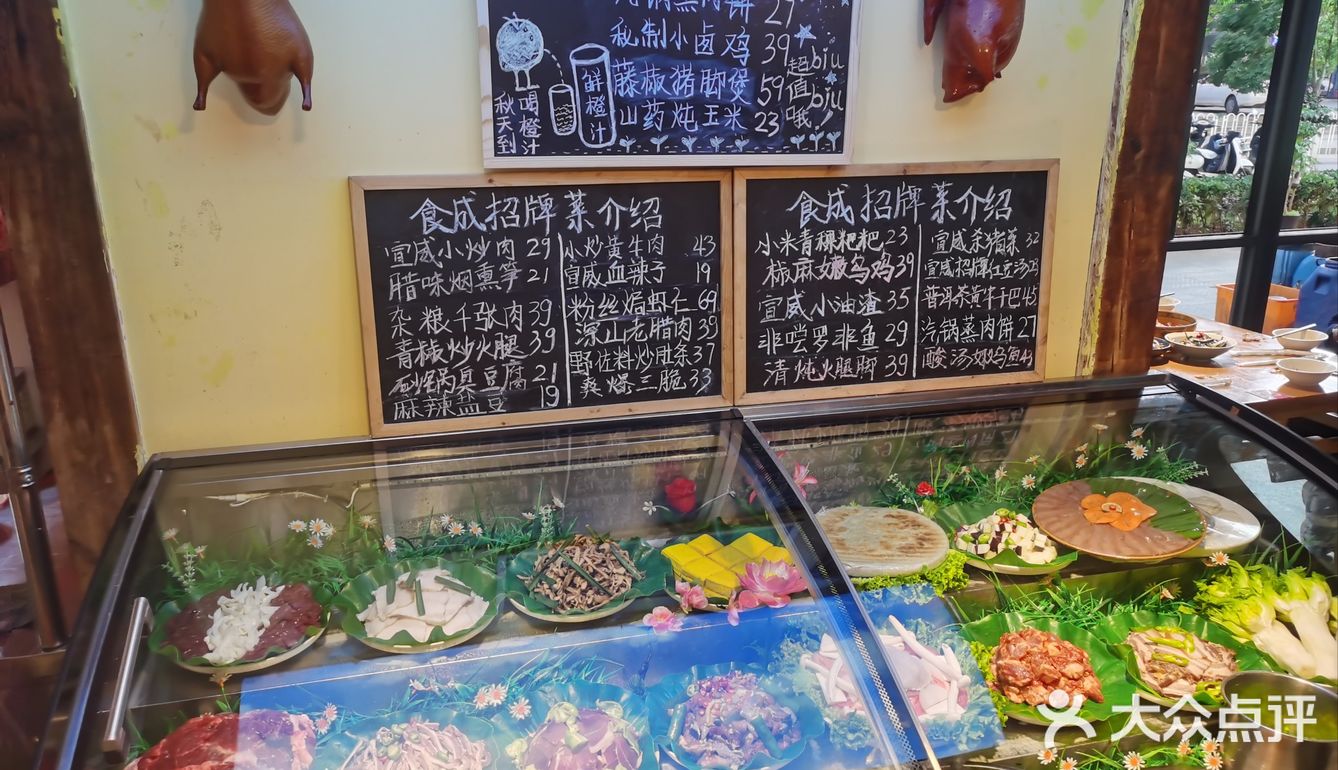 汽锅蒸肉饼 29
秘制小卤鸡 39
藤椒猪脚煲 59
山药炖玉米 23
超值哦!
biu
biu
鲜橙汁
秋天到
喝橙汁
食成招牌菜介绍
宣威小炒肉 29
腊味烟熏笋 21
杂粮千张肉 39
青椒炒火腿 39
砂锅臭豆腐 21
麻辣盐豆 19
小炒黄牛肉 43
宣威血辣子 19
粉丝焗虾仁 69
深山老腊肉 39
野佐料炒肚条 37
爽爆三脆 33
食成招牌菜介绍
小米青稞粑粑 23
椒麻嫩乌鸡 39
宣威小油渣 35
非尝罗非鱼 29
清炖火腿脚 39
宣威杀猪菜 32
宣威招牌红豆汤 23
普洱茶黄牛干巴 45
汽锅蒸肉饼 27
酸汤嫩乌鱼 43
大众点评